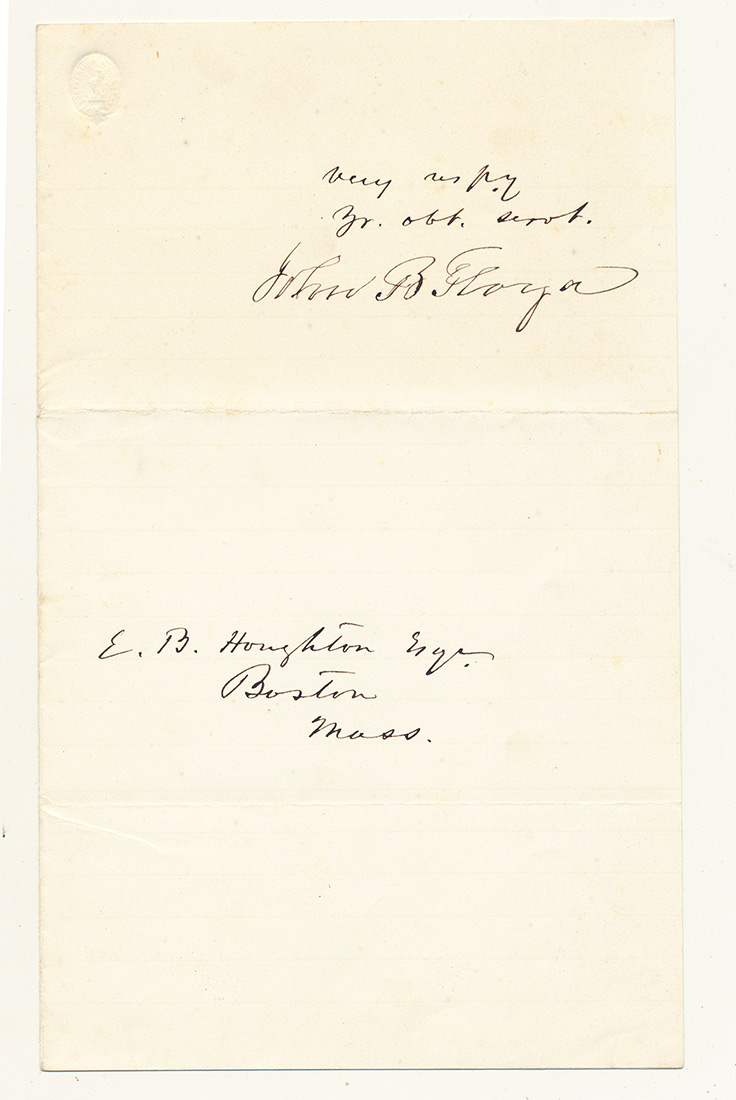 very respy
Yr. obt. servt.
John B Floyd
E. B. Houghton Esqr.
Boston
Mass.